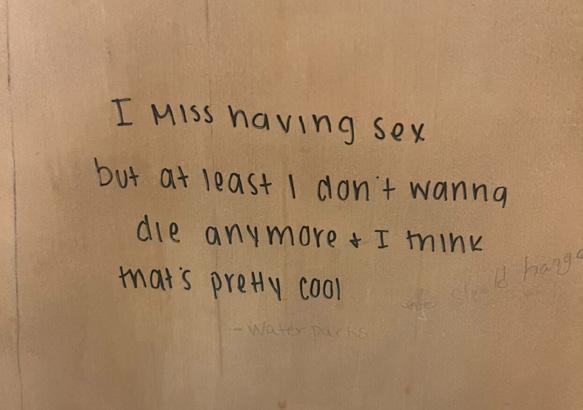 I MISS having sex
but at least I don't wanna
die anymore & I think
that's pretty cool
should hang
- Waterparks